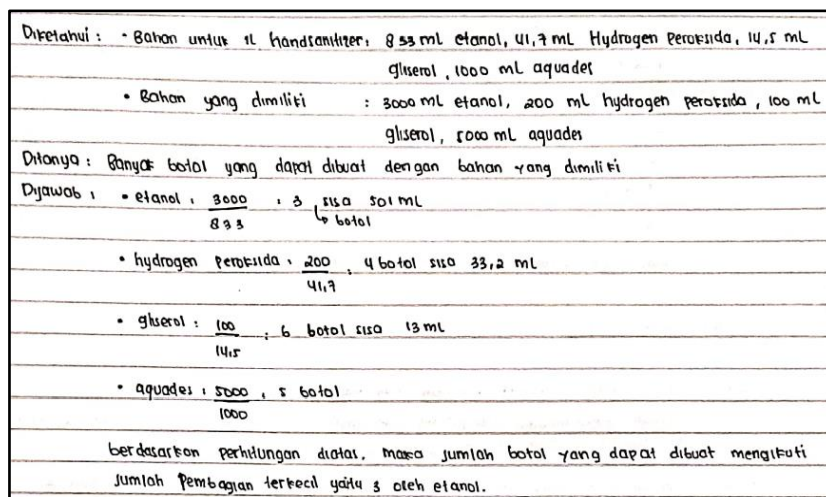 Diketahui : • Bahan untuk 1L handsanitizer: 833 ml etanol, 41,7 mL Hydrogen Peroksida, 14,5 mL
gliserol, 1000 ml aquades
• Bahan yang dimiliki : 3000 ml etanol, 200 ml hydrogen peroksida, 100 ml
gliserol, 5000 ml aquades
Ditanya : Banyak botol yang dapat dibuat dengan bahan yang dimiliki
Dijawab : • etanol : 3000 : 3 sisa 501 mL
833 ↳ botol
• hydrogen peroksida : 200 : 4 botol sisa 33,2 ml
41,7
• gliserol : 100 : 6 botol sisa 13 ml
14,5
• aquades : 5000 : 5 botol
1000
berdasarkan perhitungan diatas, maka jumlah botol yang dapat dibuat mengikuti
jumlah Pembagian terkecil yaitu 3 oleh etanol.